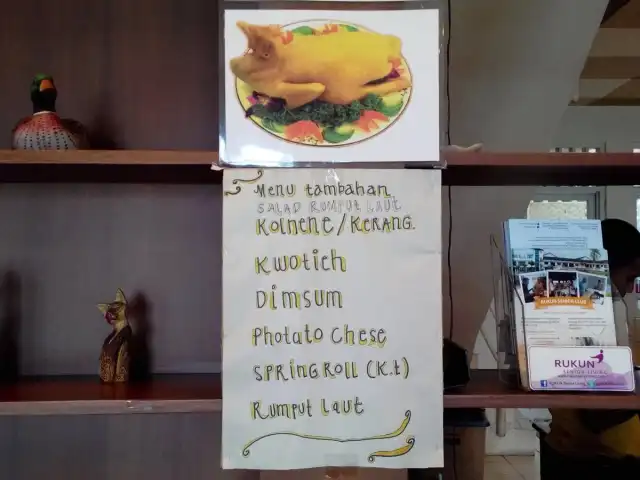 Menu tambahan
SALAD RUMPUT LAUT
Kolnene/KERANG.
Kwotieh
Dimsum
Photato Chese
SPRING ROLL (K.t)
Rumput Laut
RUKUN
SENIOR LIVING